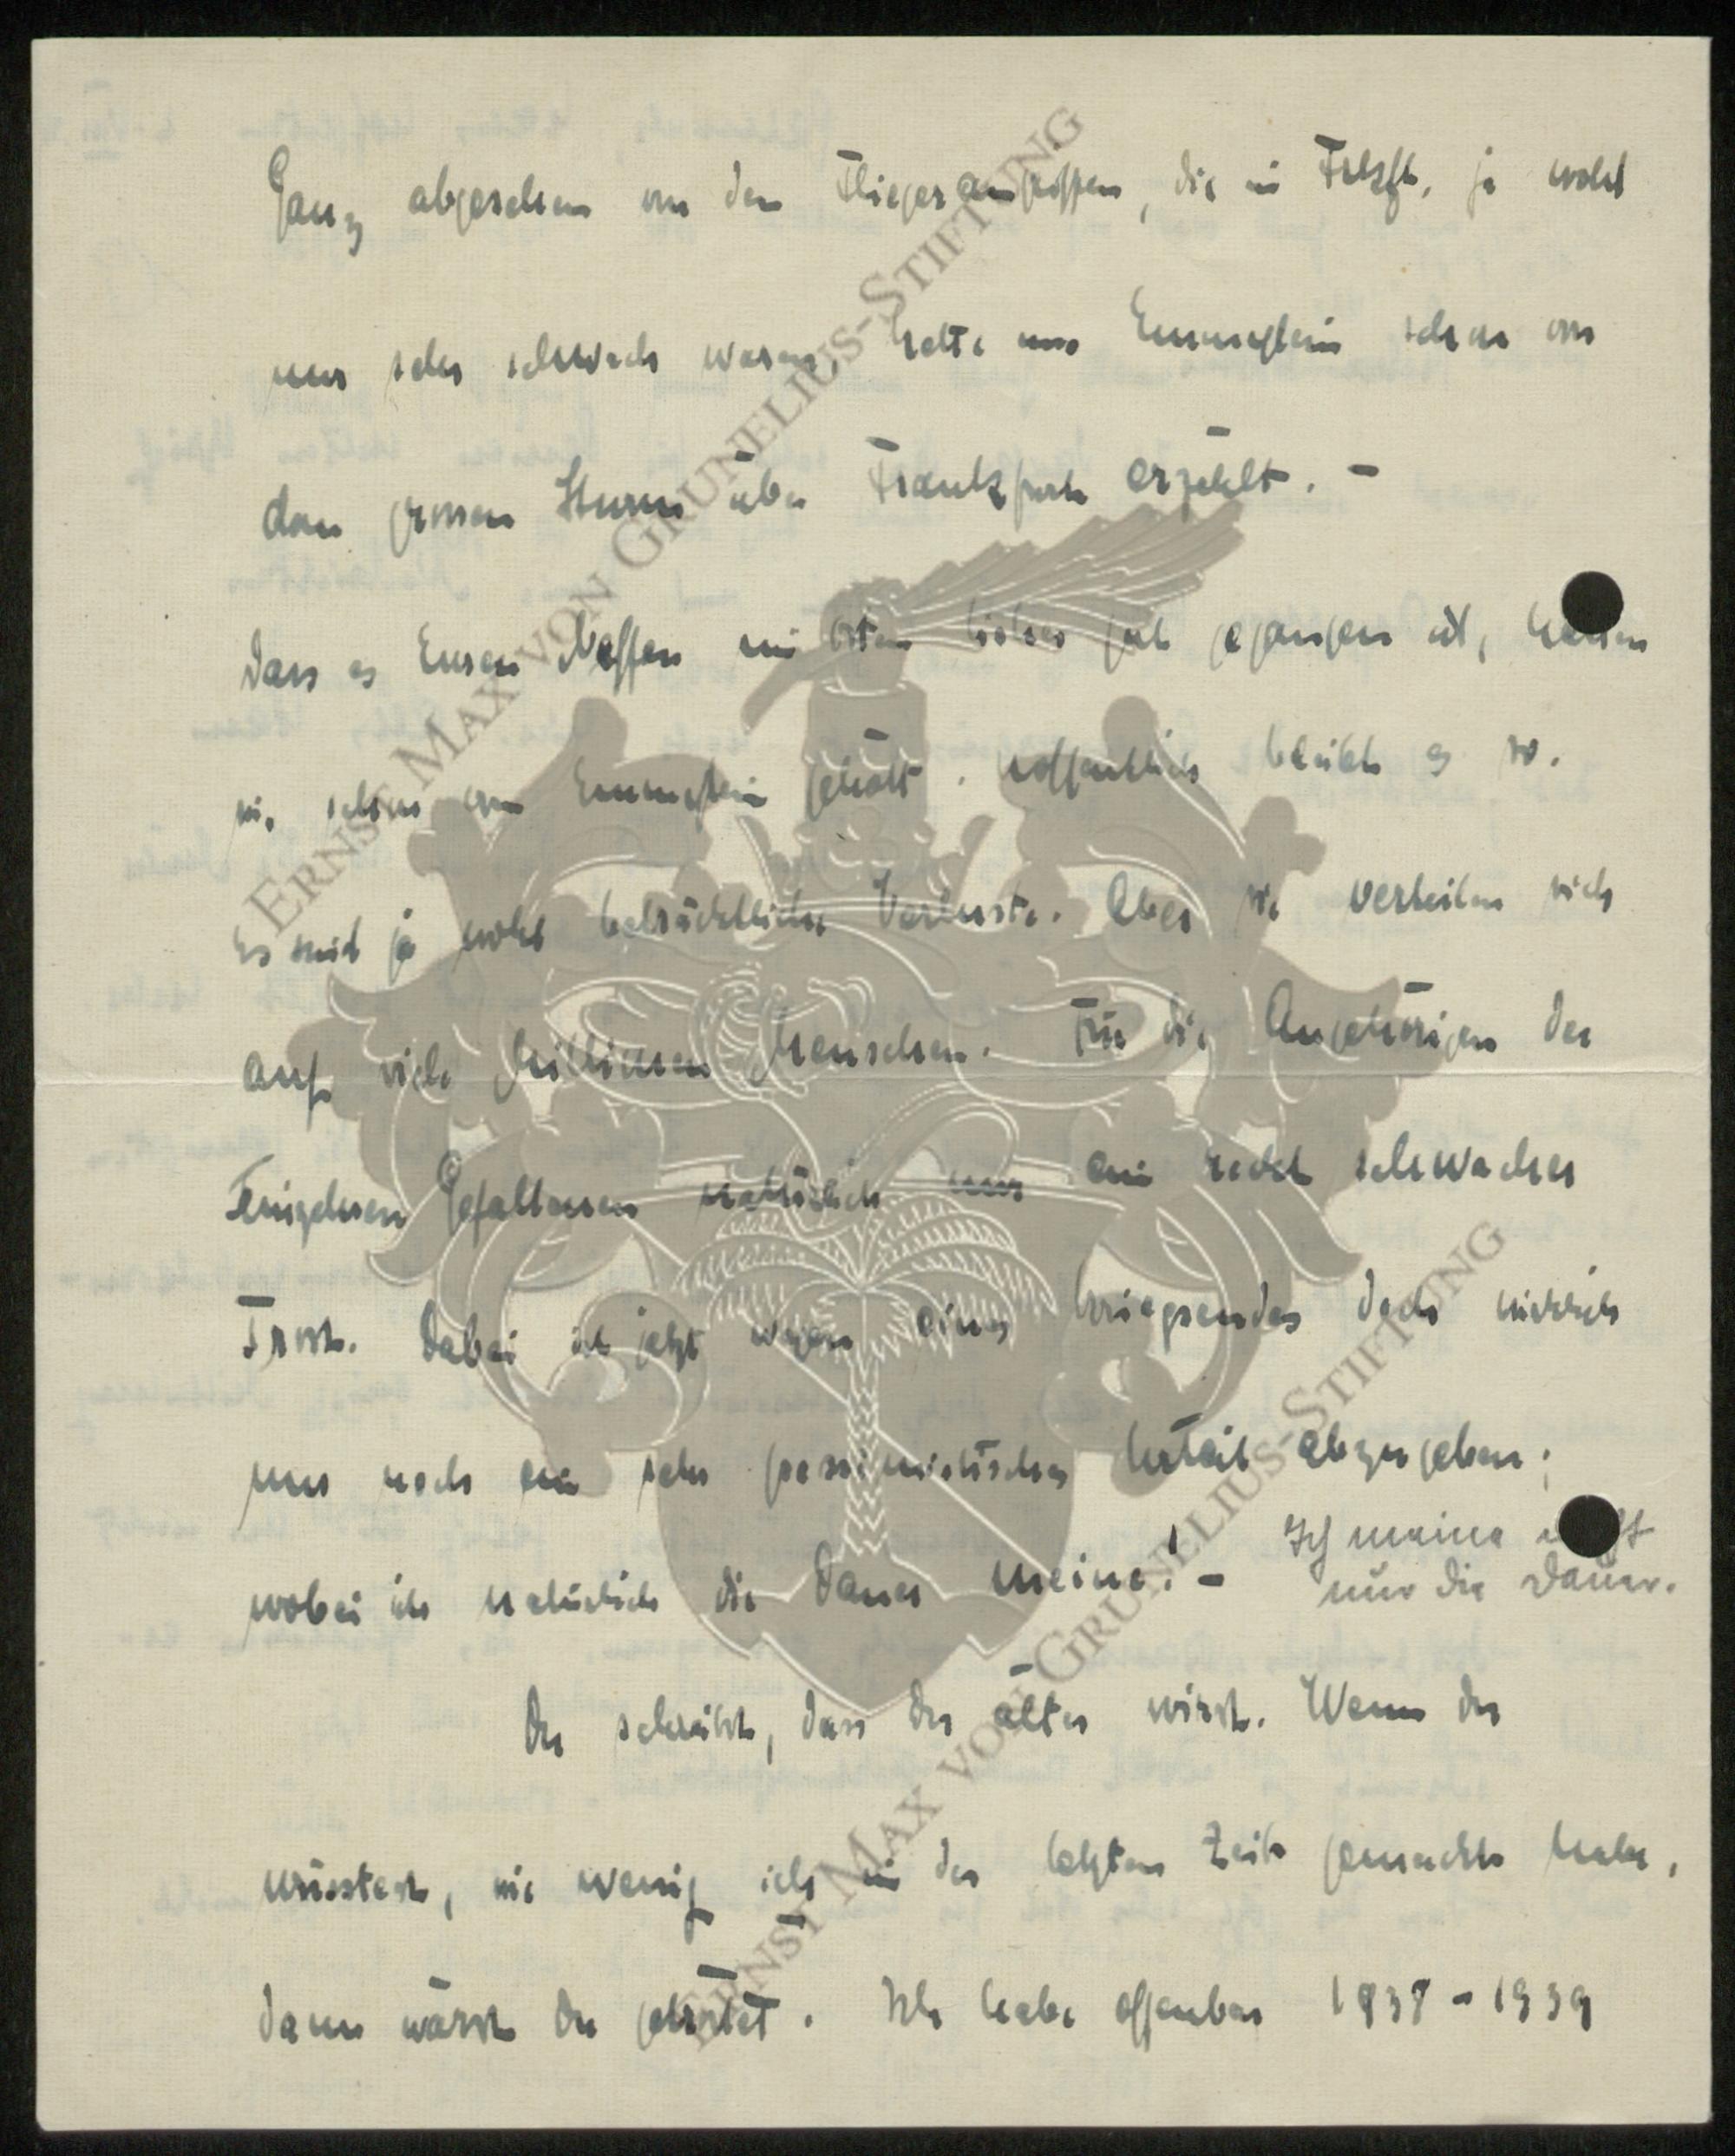 Ganz abgesehen von den Fliegerangriffen, die in Frkft. ja wohl
nur sehr schwach waren, hatte uns Emmystein schon von
dem grossen Sturm über Frankfurt erzählt. –
Dass es Euren Neffen im Osten bisher gut gegangen ist, hatten
wir schon von Emmystein gehört. Hoffentlich bleibt es so.
Es sind ja wohl beträchtliche Verluste. Aber sie verteilen sich
auf viele Millionen Menschen. Für die Angehörigen der
Einzelnen Gefallenen natürlich nur ein recht schwacher
Trost. Dabei ist jetzt wegen eines Kriegsendes doch wirklich
nur noch ein sehr pessimistisches Urteil abzugeben;
wobei ich natürlich die Dauer meine! –
Ich meine nicht
nur die Dauer.
Du schreibst, dass Du älter wirst. Wenn Du
wüsstest, wie wenig ich in der letzten Zeit gemacht habe,
dann wärst Du getröstet. Ich habe offenbar 1938 – 1939
ERNST MAX VON GRUNELIUS-STIFTUNG
ERNST MAX VON GRUNELIUS-STIFTUNG